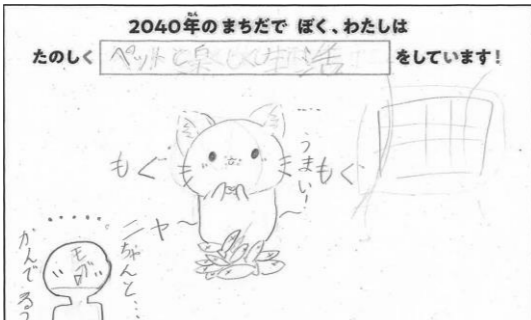 2040年のまちだで ぼく、わたしは
たのしく ペットと楽しく生活 をしています！
もぐ
もぐ
うまい！
ニャ～
ちゃんと…
かんでるう
モグ